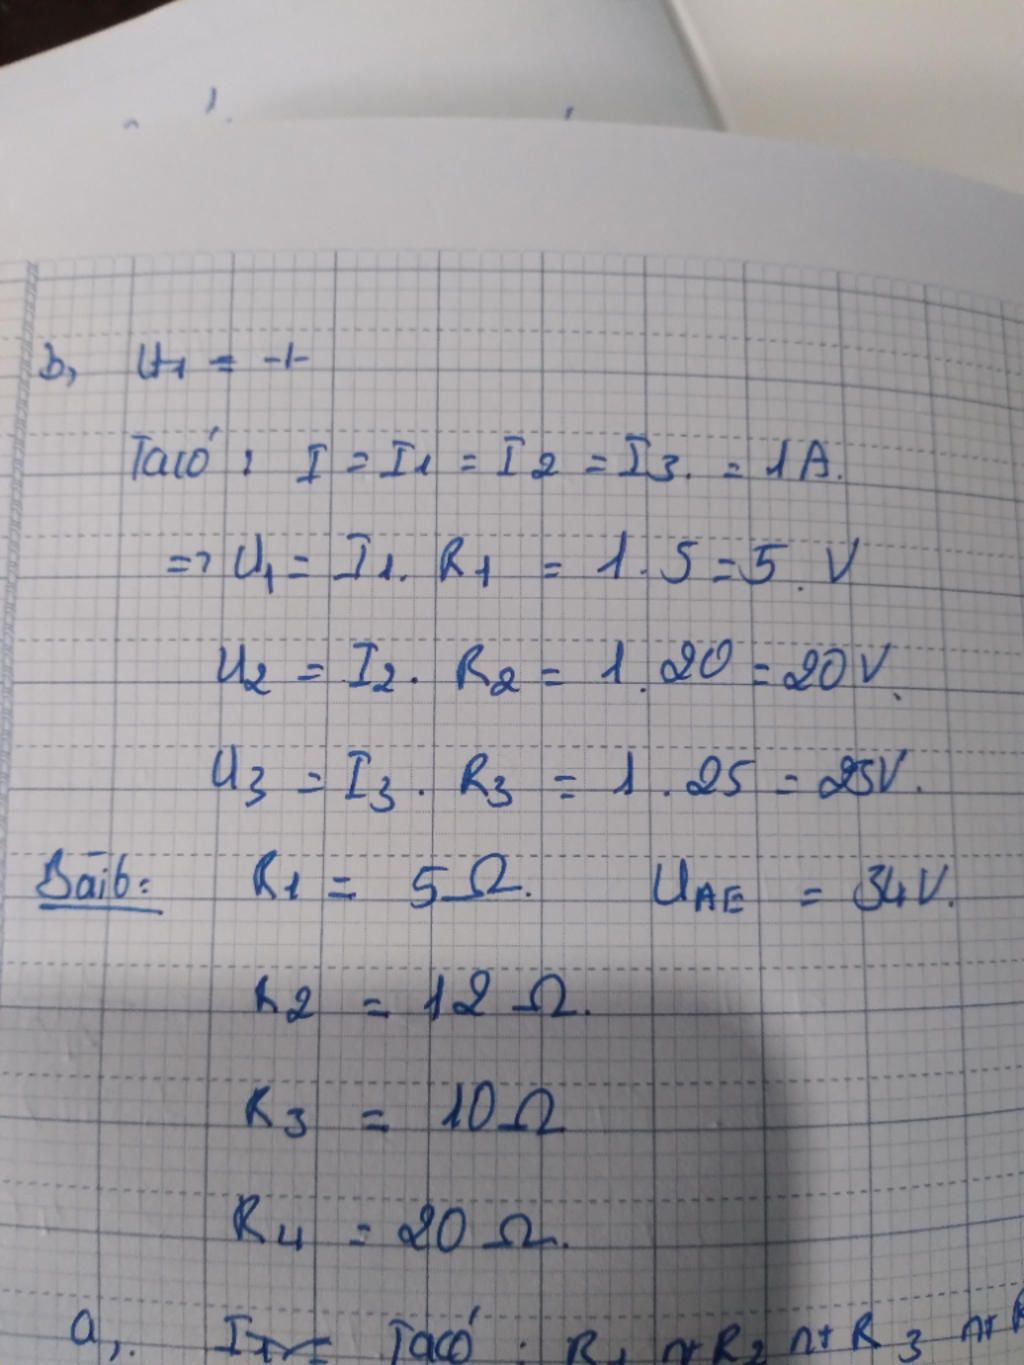 b, U1 = 1
Ta có : I = I1 = I2 = I3. = 1A.
=> U1 = I1. R1 = 1.5 = 5.V
U2 = I2. R2 = 1.20 = 20V.
U3 = I3. R3 = 1.25 = 25V.
Bài 6: R1 = 5Ω. UAE = 34V.
R2 = 12Ω.
R3 = 10Ω
R4 = 20Ω.
a, Ta có : R1 nt R2 nt R3 nt